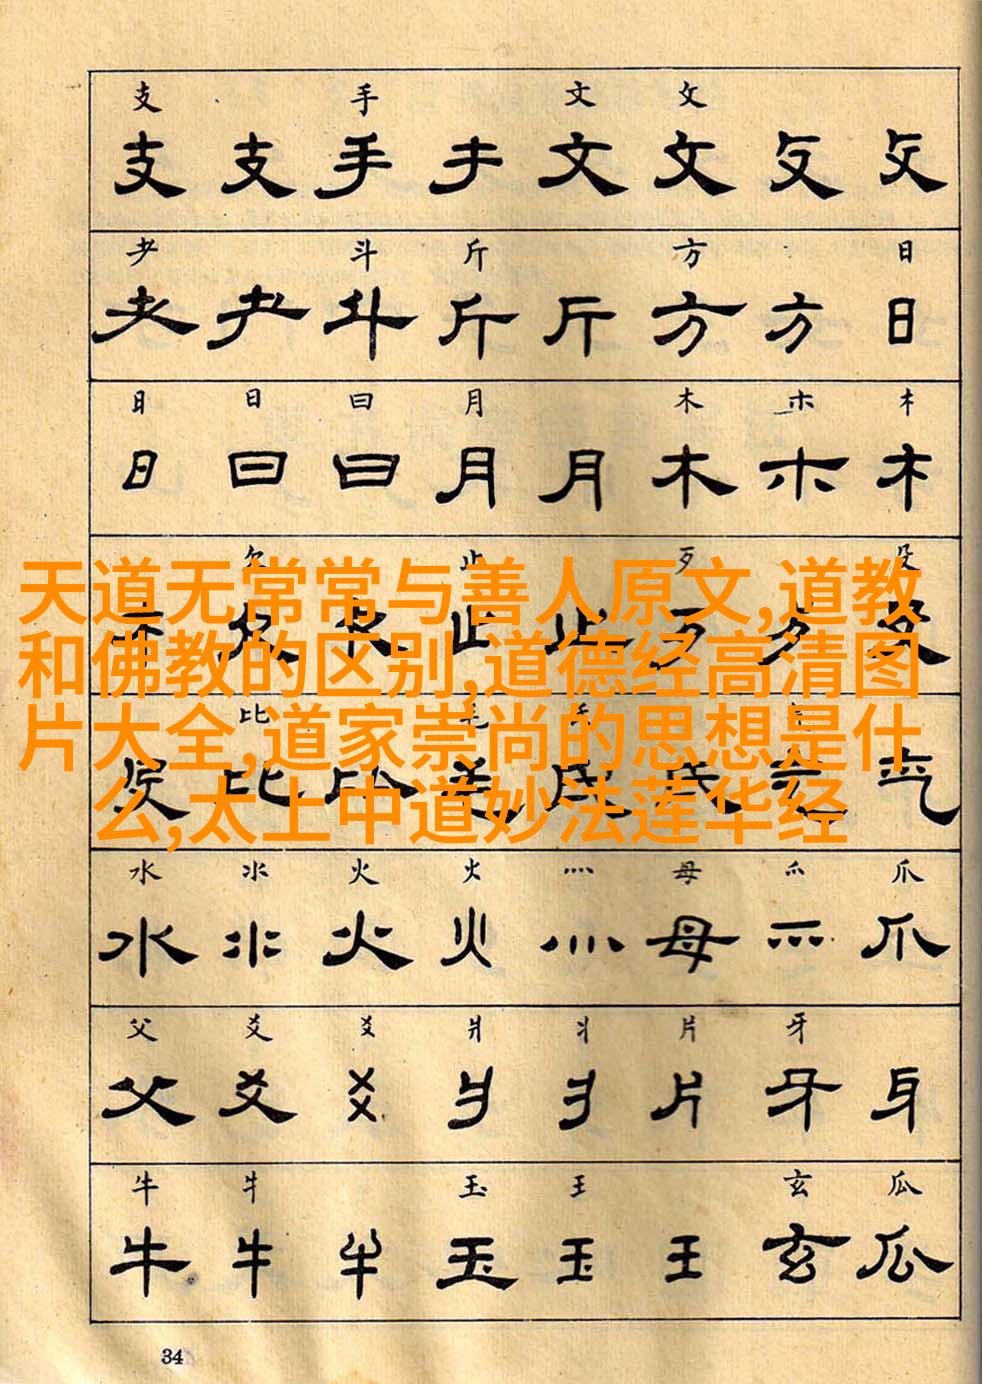 支 手 文 攵
支 支 手 手 文 攵 攵 攵
耂 斗 斤 方 日
耂 耂 斗 斤 斤 方 方 日
日 日 曰 月 木 朩 木
日 日 曰 月 月 木 朩 木
欠 止 歹 殳
天道无常常与善人原文,道教
和佛教的区别,道德经高清图
片大全,道家崇尚的思想是什
么,太上中道妙法莲华经
比
水 氺 火 火 灬 母 爫 爪
水 氺 火 火 灬 母 爫 爪
父 爻 爻 爿 丬 片 牙
父 爻 爻 爿 丬 片 牙 牙
牛 牜 玉 王 玄 瓜
牛 牜 牛 玉 玉 王 玄 瓜
34